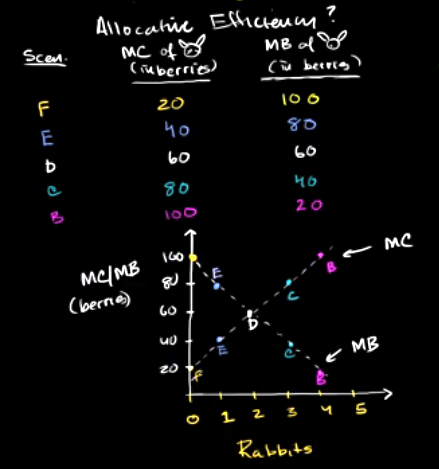 Allocative Efficiency?
Scen.
MC of
(in berries)
MB of
(in berries)
F 20 100
E 40 80
D 60 60
C 80 40
B 100 20
MC/MB
(berries)
100
80
60
40
20
E
C
B
MC
D
F
E
C
B
MB
0 1 2 3 4 5
Rabbits